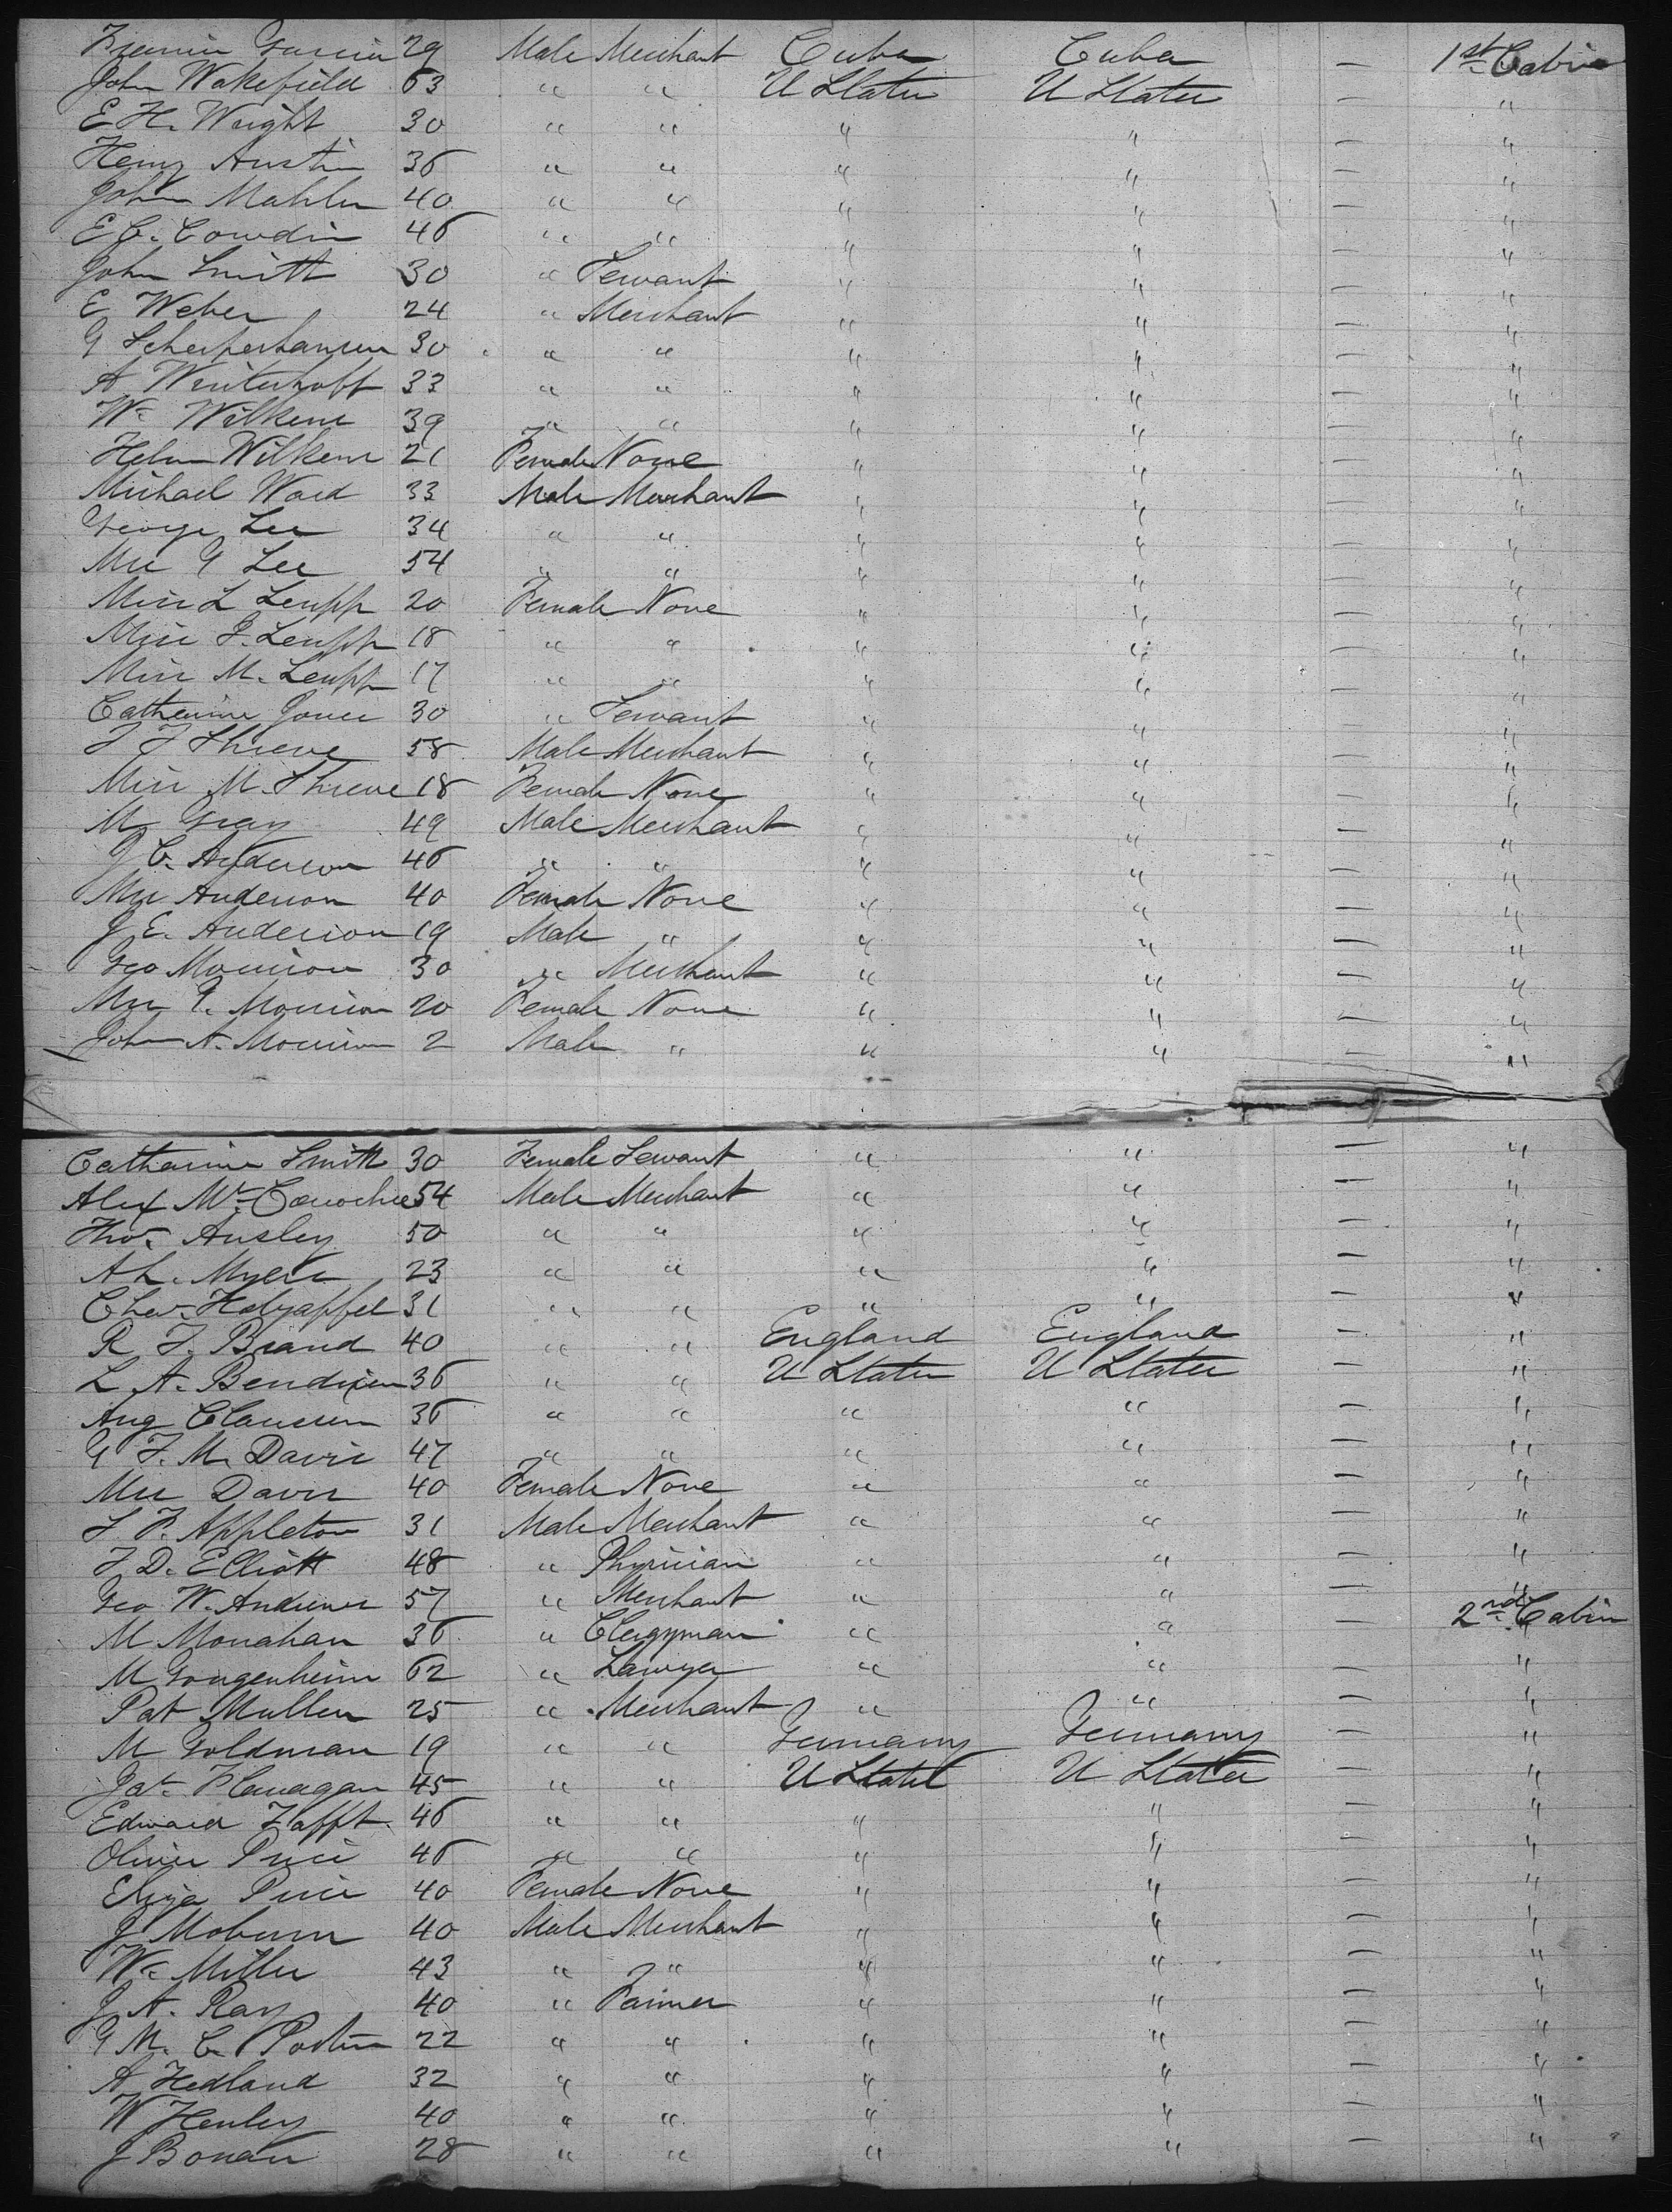 Garcia 29 Male Merchant Cuba Cuba — 1st Cabin
John Wakefield 63 " " U States U States — "
E H. Wright 30 " " " " — "
Henry Austin 36 " " " " — "
John Mahler 40 " " " " — "
E C. Cowdin 46 " " " " — "
John Smith 30 " Servant " " — "
E Weber 24 " Merchant " " — "
G 30 " " " " — "
A Winterhoff 33 " " " " — "
Wm Wilkens 39 " " " " — "
Helen Wilkens 21 Female None " " — "
Michael Ward 33 Male Merchant " " — "
George Lee 34 " " " " — "
Mrs G Lee 54 " " " " — "
Miss L Leupp 20 Female None " " — "
Miss J. Leupp 18 " " " " — "
Miss M. Leupp 17 " " " " — "
Catherine Jones 30 " Servant " " — "
58 Male Merchant " " — "
Miss M 18 Female None " " — "
M Gray 49 Male Merchant " " — "
J C. Anderson 46 " " " " — "
Mrs Anderson 40 Female None " " — "
J E. Anderson 19 Male " " " — "
Geo Morrison 30 " Merchant " " — "
Mrs G. Morrison 20 Female None " " — "
John A. Morrison 2 Male " " " — "
Catharine Smith 30 Female Servant " " — "
Alex McConochie 54 Male Merchant " " — "
Thos. Ansley 50 " " " " — "
A L. Myers 23 " " " " — "
Chas. Holzapfel 31 " " " " — "
R J. Brand 40 " " England England — "
L A. Bendixen 36 " " U States U States — "
Aug Claussen 36 " " " " — "
G T. M. Davis 47 " " " " — "
Mrs Davis 40 Female None " " — "
Appleton 31 Male Merchant " " — "
D. Elliott 48 " Physician " " — "
Geo W. Andrews 57 " Merchant " " — "
M Monahan 36 " Clergyman " " 2nd Cabin
M 62 " Lawyer " " — "
Pat Mullen 25 " Merchant " " — "
M Goldman 19 " " Germany Germany — "
Flanagan 45 " " U States U States — "
Edward 46 " " " " — "
Oliver Price 46 " " " " — "
Eliza Price 40 Female None " " — "
J 40 Male Merchant " " — "
Wm Miller 43 " " " " — "
J A. Ray 40 " Farmer " " — "
G M. C. Porter 22 " " " " — "
A Hedland 32 " " " " — "
W Henley 40 " " " " — "
J 28 " " " " — "